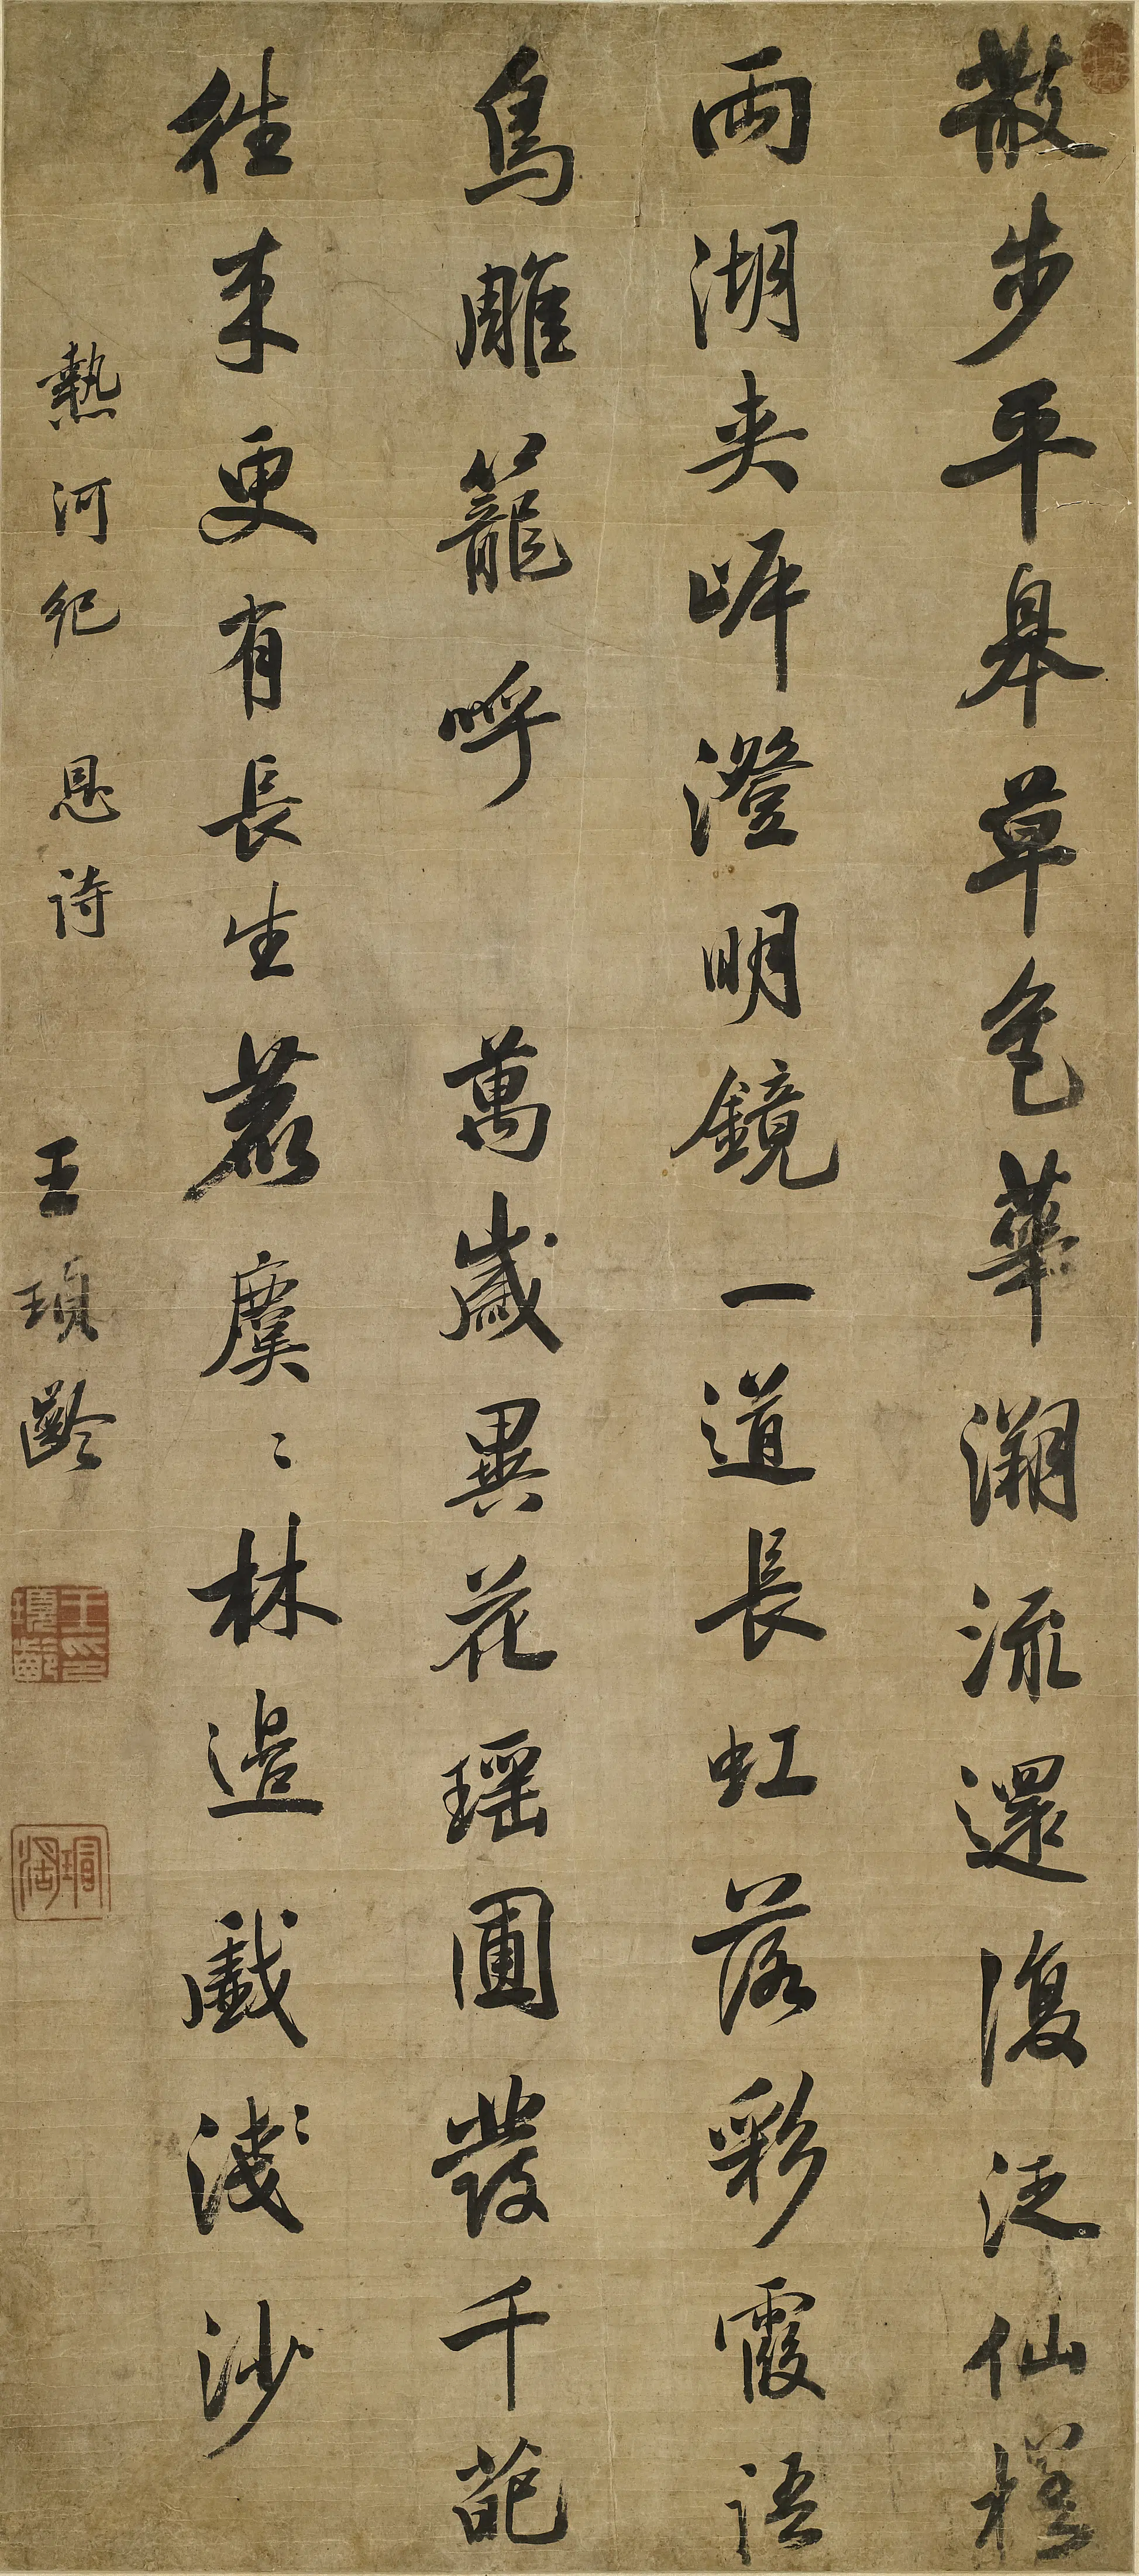 散步平皋草色華溯流還復泛仙槎
兩湖夾岸澄明鏡一道長虹落彩霞語
鳥雕籠呼萬歲異花瑤圃發千葩
徃來更有長生鹿麌〻林邊戲淺沙
熱河紀恩詩 王頊齡
王印頊齡
瑁湖